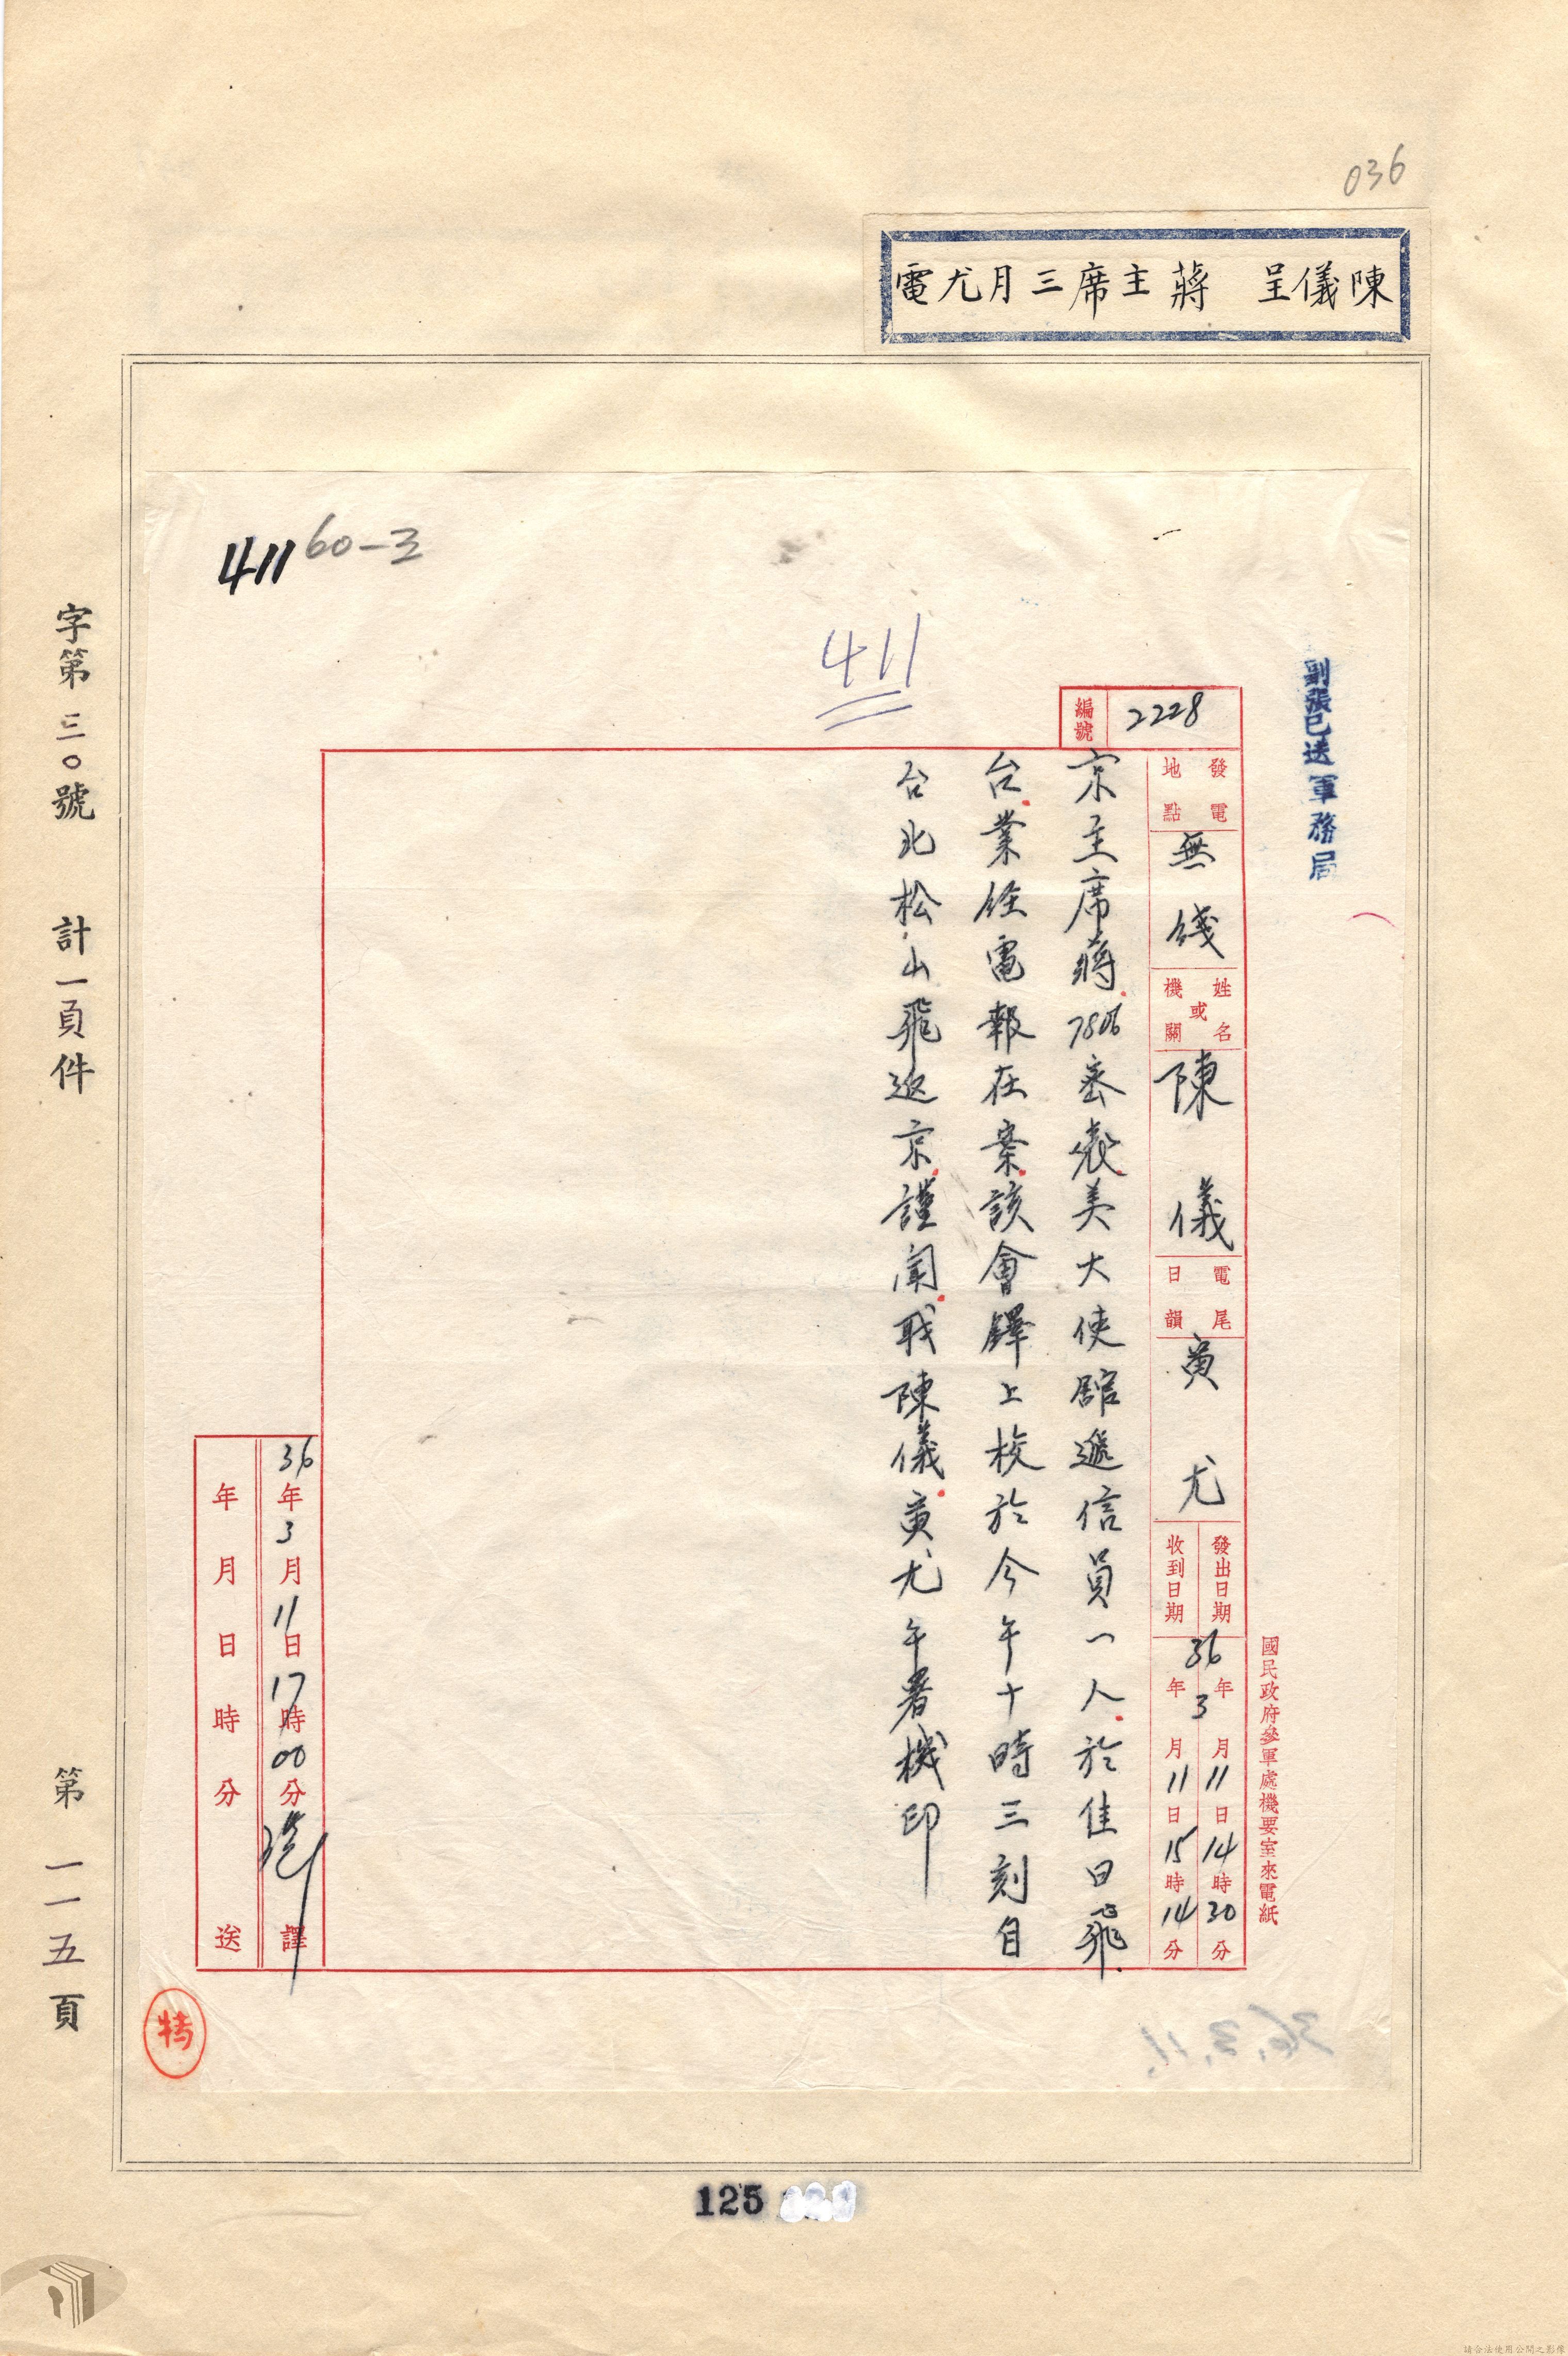 036
陳儀呈　蔣主席三月尤電
411 60-3
411
副張已送軍務局
國民政府參軍處機要室來電紙
編號 2228
發電地點 無綫
姓名或機關 陳儀
電尾日韻 寅尤
發出日期 36年3月11日14時30分
收到日期 年月11日15時14分
京主席蔣.7806密.美大使館遞信員一人.於佳日飛
台.業經電報在案.該會鐸上校於今午十時三刻自
台北松山飛返京.謹聞.職陳儀.寅尤午署機印
36年3月11日17時00分譯
年月日時分送
特
36.3.11.
字第三〇號　計一頁件　第一一五頁
125
請合法使用公開之影像